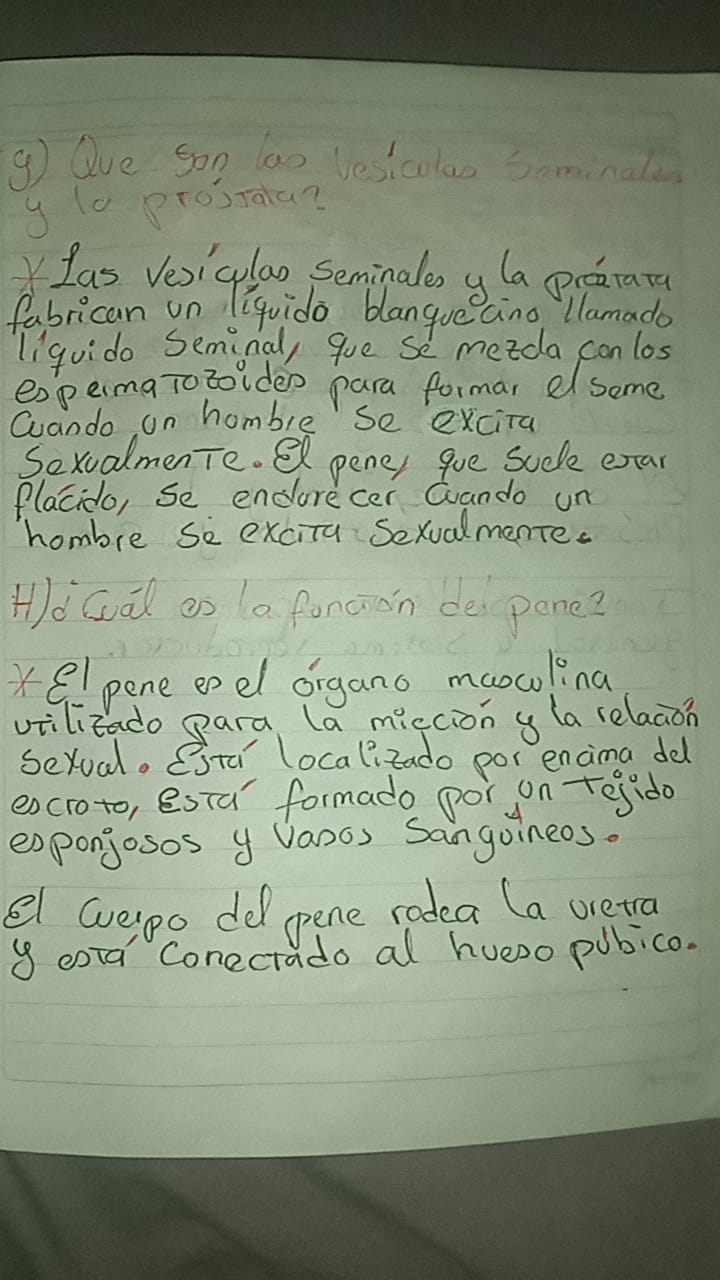 g) Que son las Vesículas Seminales
y la próstata?
* Las vesículas seminales y la próstata
fabrican un líquido blanquecino llamado
líquido seminal, que se mezcla con los
espermatozoides para formar el seme
Cuando un hombre se excita
Sexualmente. El pene, que suele estar
flácido, se endurecer cuando un
hombre se excita Sexualmente.
H) ¿Cuál es la función del pene?
* El pene es el órgano masculina
utilizado para la micción y la relación
sexual. Está localizado por encima del
escroto, está formado por un tejido
esponjosos y vasos Sanguíneos.
El cuerpo del pene rodea la uretra
y está conectado al hueso púbico.